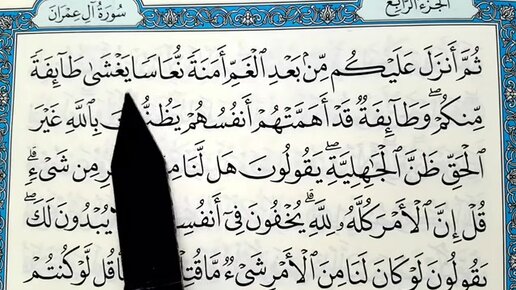 الجُزْءُ الرَّابِعُ
سُورَةُ آلِ عِمْرَانَ
ثُمَّ أَنزَلَ عَلَيْكُم مِّنۢ بَعْدِ ٱلْغَمِّ أَمَنَةً نُّعَاسًا يَغْشَىٰ طَآئِفَةً
مِّنكُمْ ۖ وَطَآئِفَةٌ قَدْ أَهَمَّتْهُمْ أَنفُسُهُمْ يَظُنُّونَ بِٱللَّهِ غَيْرَ
ٱلْحَقِّ ظَنَّ ٱلْجَٰهِلِيَّةِ ۖ يَقُولُونَ هَل لَّنَا مِن شَىْءٍ ۗ
قُلْ إِنَّ ٱلْأَمْرَ كُلَّهُۥ لِلَّهِ ۗ يُخْفُونَ فِىٓ يُبْدُونَ لَكَ ۖ
يَقُولُونَ لَوْ كَانَ لَنَا مِنَ ٱلْأَمْرِ شَىْءٌ قُل لَّوْ كُنتُمْ